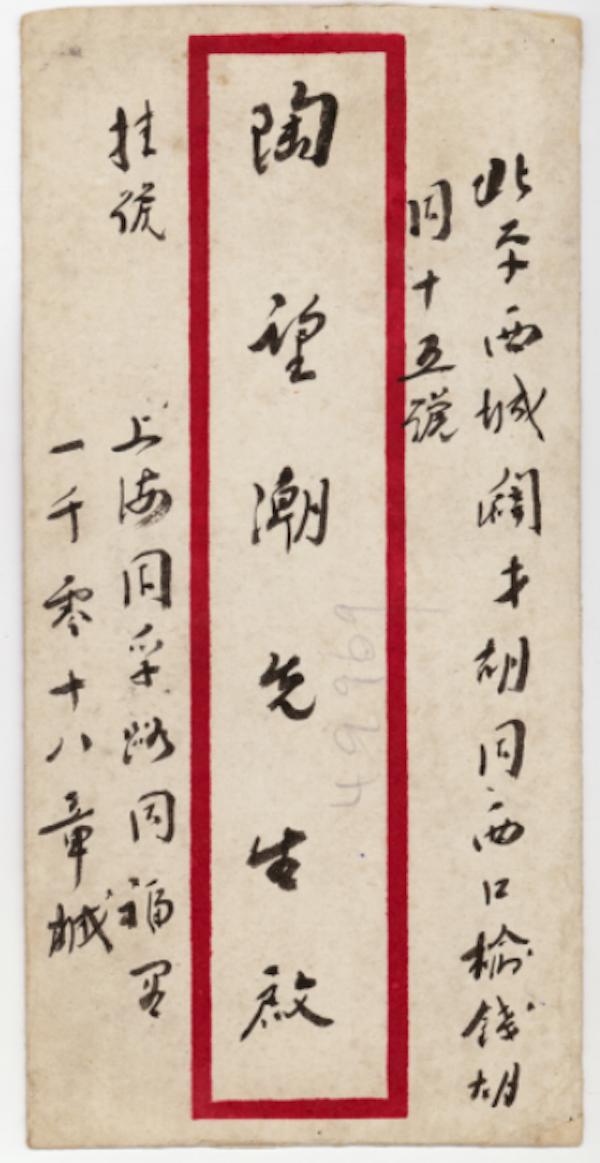 北平西城闢才胡同西口榆錢胡
同十五號
陶望潮先生啟
挂號
上海同孚路同福里
一千零十八章緘